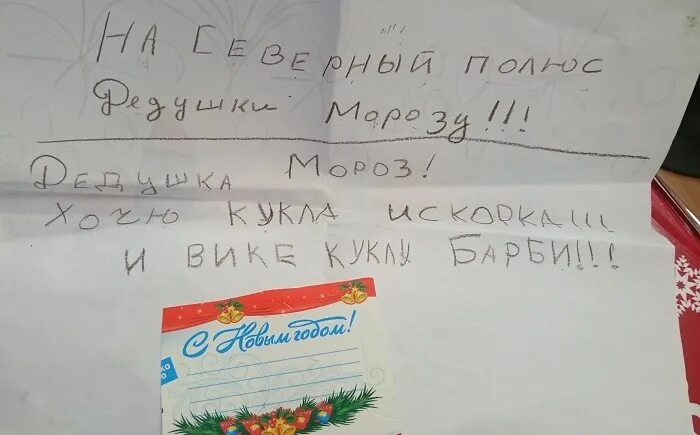 НА СЕВЕРНЫЙ ПОЛЮС
Дедушки Морозу!!!
ДЕДУШКА МОРОЗ!
ХОЧЮ КУКЛА ИСКОРКА!!!
И ВИКЕ КУКЛУ БАРБИ!!!
С Новым годом!